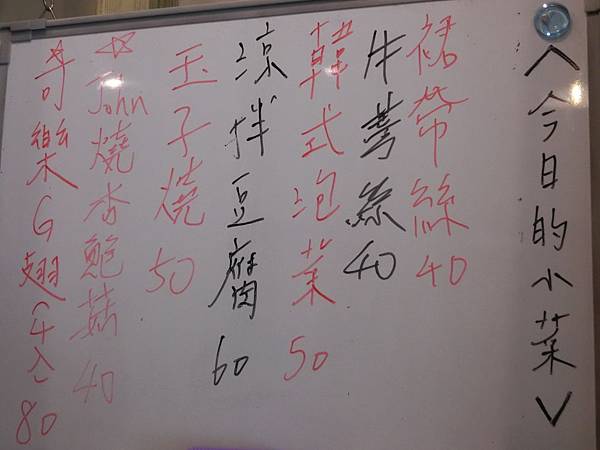 <今日的小菜>
裙帶絲40
牛蒡絲40
韓式泡菜50
涼拌豆腐60
玉子燒50
☆John燒杏鮑菇40
☆奇樂G翅(4入)80